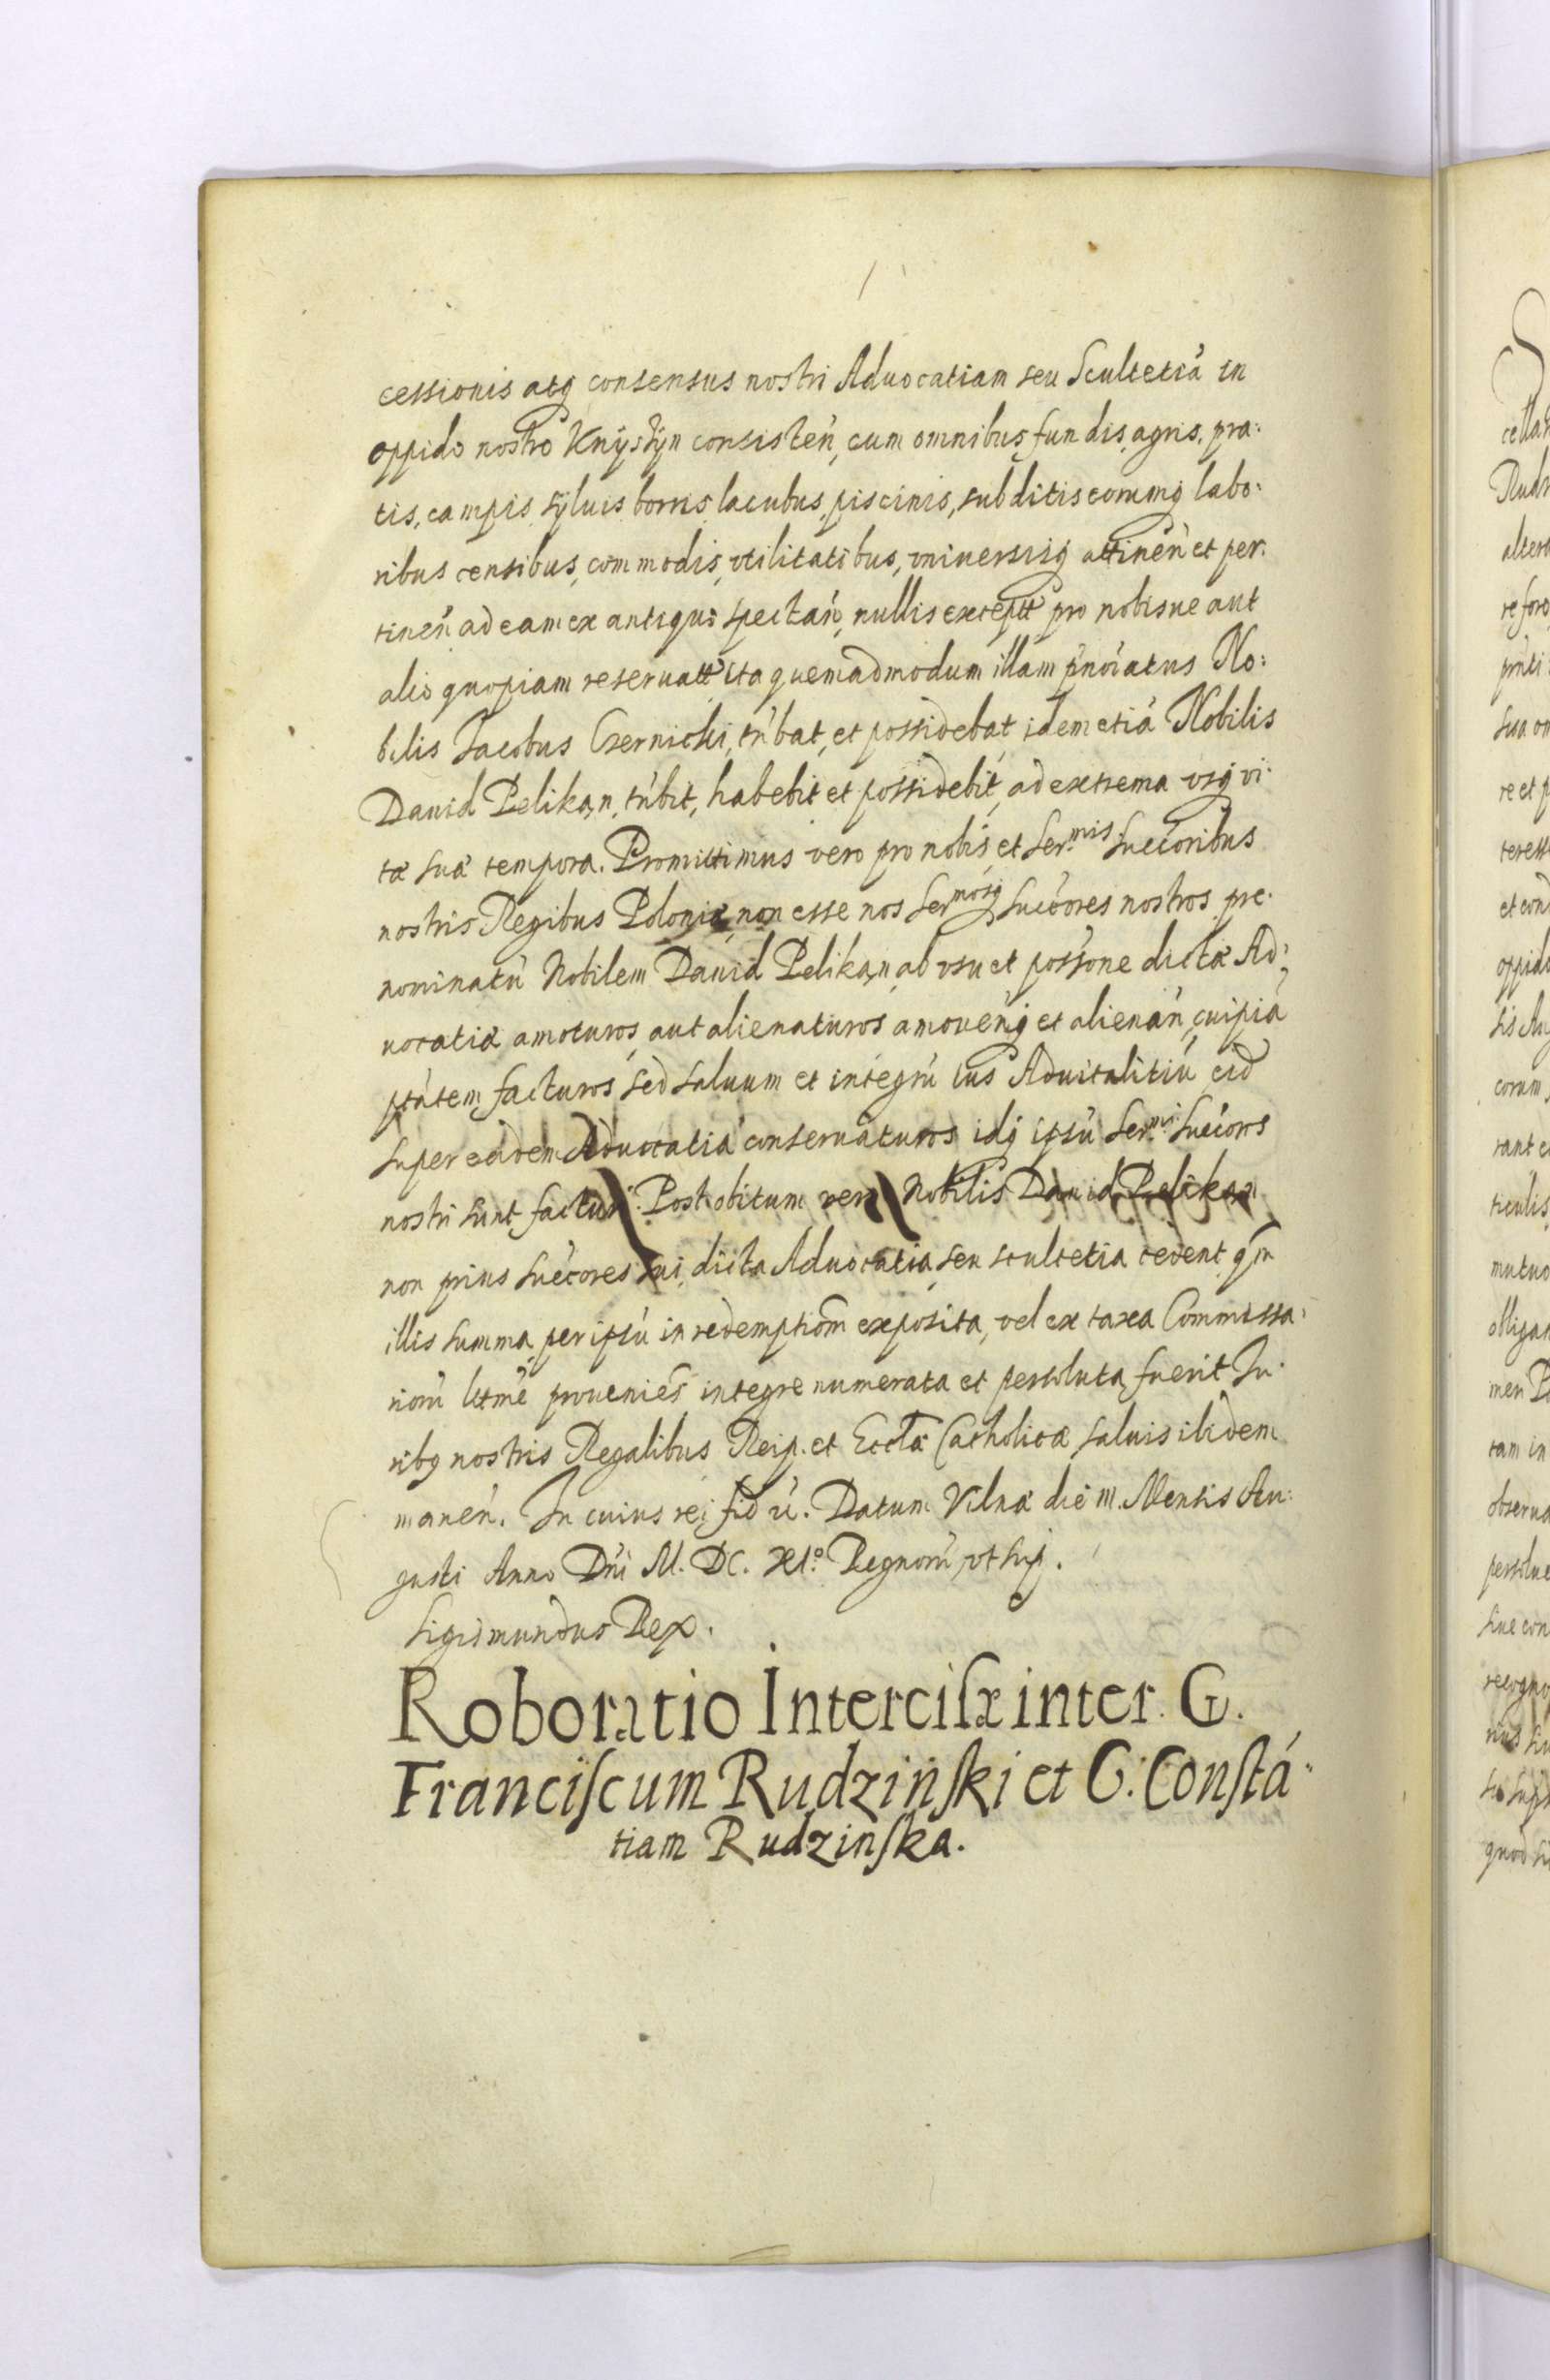 cessionis atq̨ consensus nostri Aduocatiam seu Scultetiã in
oppido nostro Knÿstÿn consisteń, cum omnibus fundis, agris, pra:
tis, campis, sÿluis, borris, lacubus, piscinis, subditis eorumq̨ labo:
ribus censibus, commodis, vtilitatibus, vniuersisq̨ attineń et per:
tineń ad eam ex antiquo spectań, nullis exceptt pro nobisue aut
alio quopiam reseruatt ita quemadmodum illam p̃noĩatus No:
bilis Jacobus Czernicki, tńbat, et possidebat, idem etiã Nobilis
Dauid Pelikan, tńbit, habebit et possidebit, ad extrema vsq̨ vi:
tæ suæ tempora. Promittimus vero pro nobis et Ser.mis Suc̃coribus
nostris Regibus Poloniæ, non esse nos Sermosq̨ Suc̃cores nostros pre:
nominatũ Nobilem Dauid Pelikan, ab vsu et poss̃one dictæ Ad:
uocatiæ amoturos, aut alienaturos amoueńq̨ et alienań, cuipiã
ptãtem facturos sed saluum et integrũ ius Aduitalitiũ eid
super eadem Aduocatia conseruaturos idq̨ ipsũ Ser.mi Suc̃cors
nostri sunt facturi. Post obitum vero Nobilis Dauid Pelikan
non prius Suc̃cores sui, dicta Aduocatia, seu scultetia cedent q̃m
illis summa, per ipsũ in redemptiom̃ exposita, vel ex taxa Commissa:
riorũ lttmẽ prouenieś integre numerata et persoluta fuerit Ju:
ribq̨ nostris Regalibus Reip. et Ecclæ Catholicæ saluis ibidem
maneń. In cuius rei fid ũ. Datum Vilnæ die III. Mensis Au:
gusti Anno Dńi M. DC. XI.o Regnorũ vt sup.
Sigismundus Rex.
Roboratio Interciſæ inter G.
Franciſcum Rudzinſki et G. Conſtã:
tiam Rudzinſka.